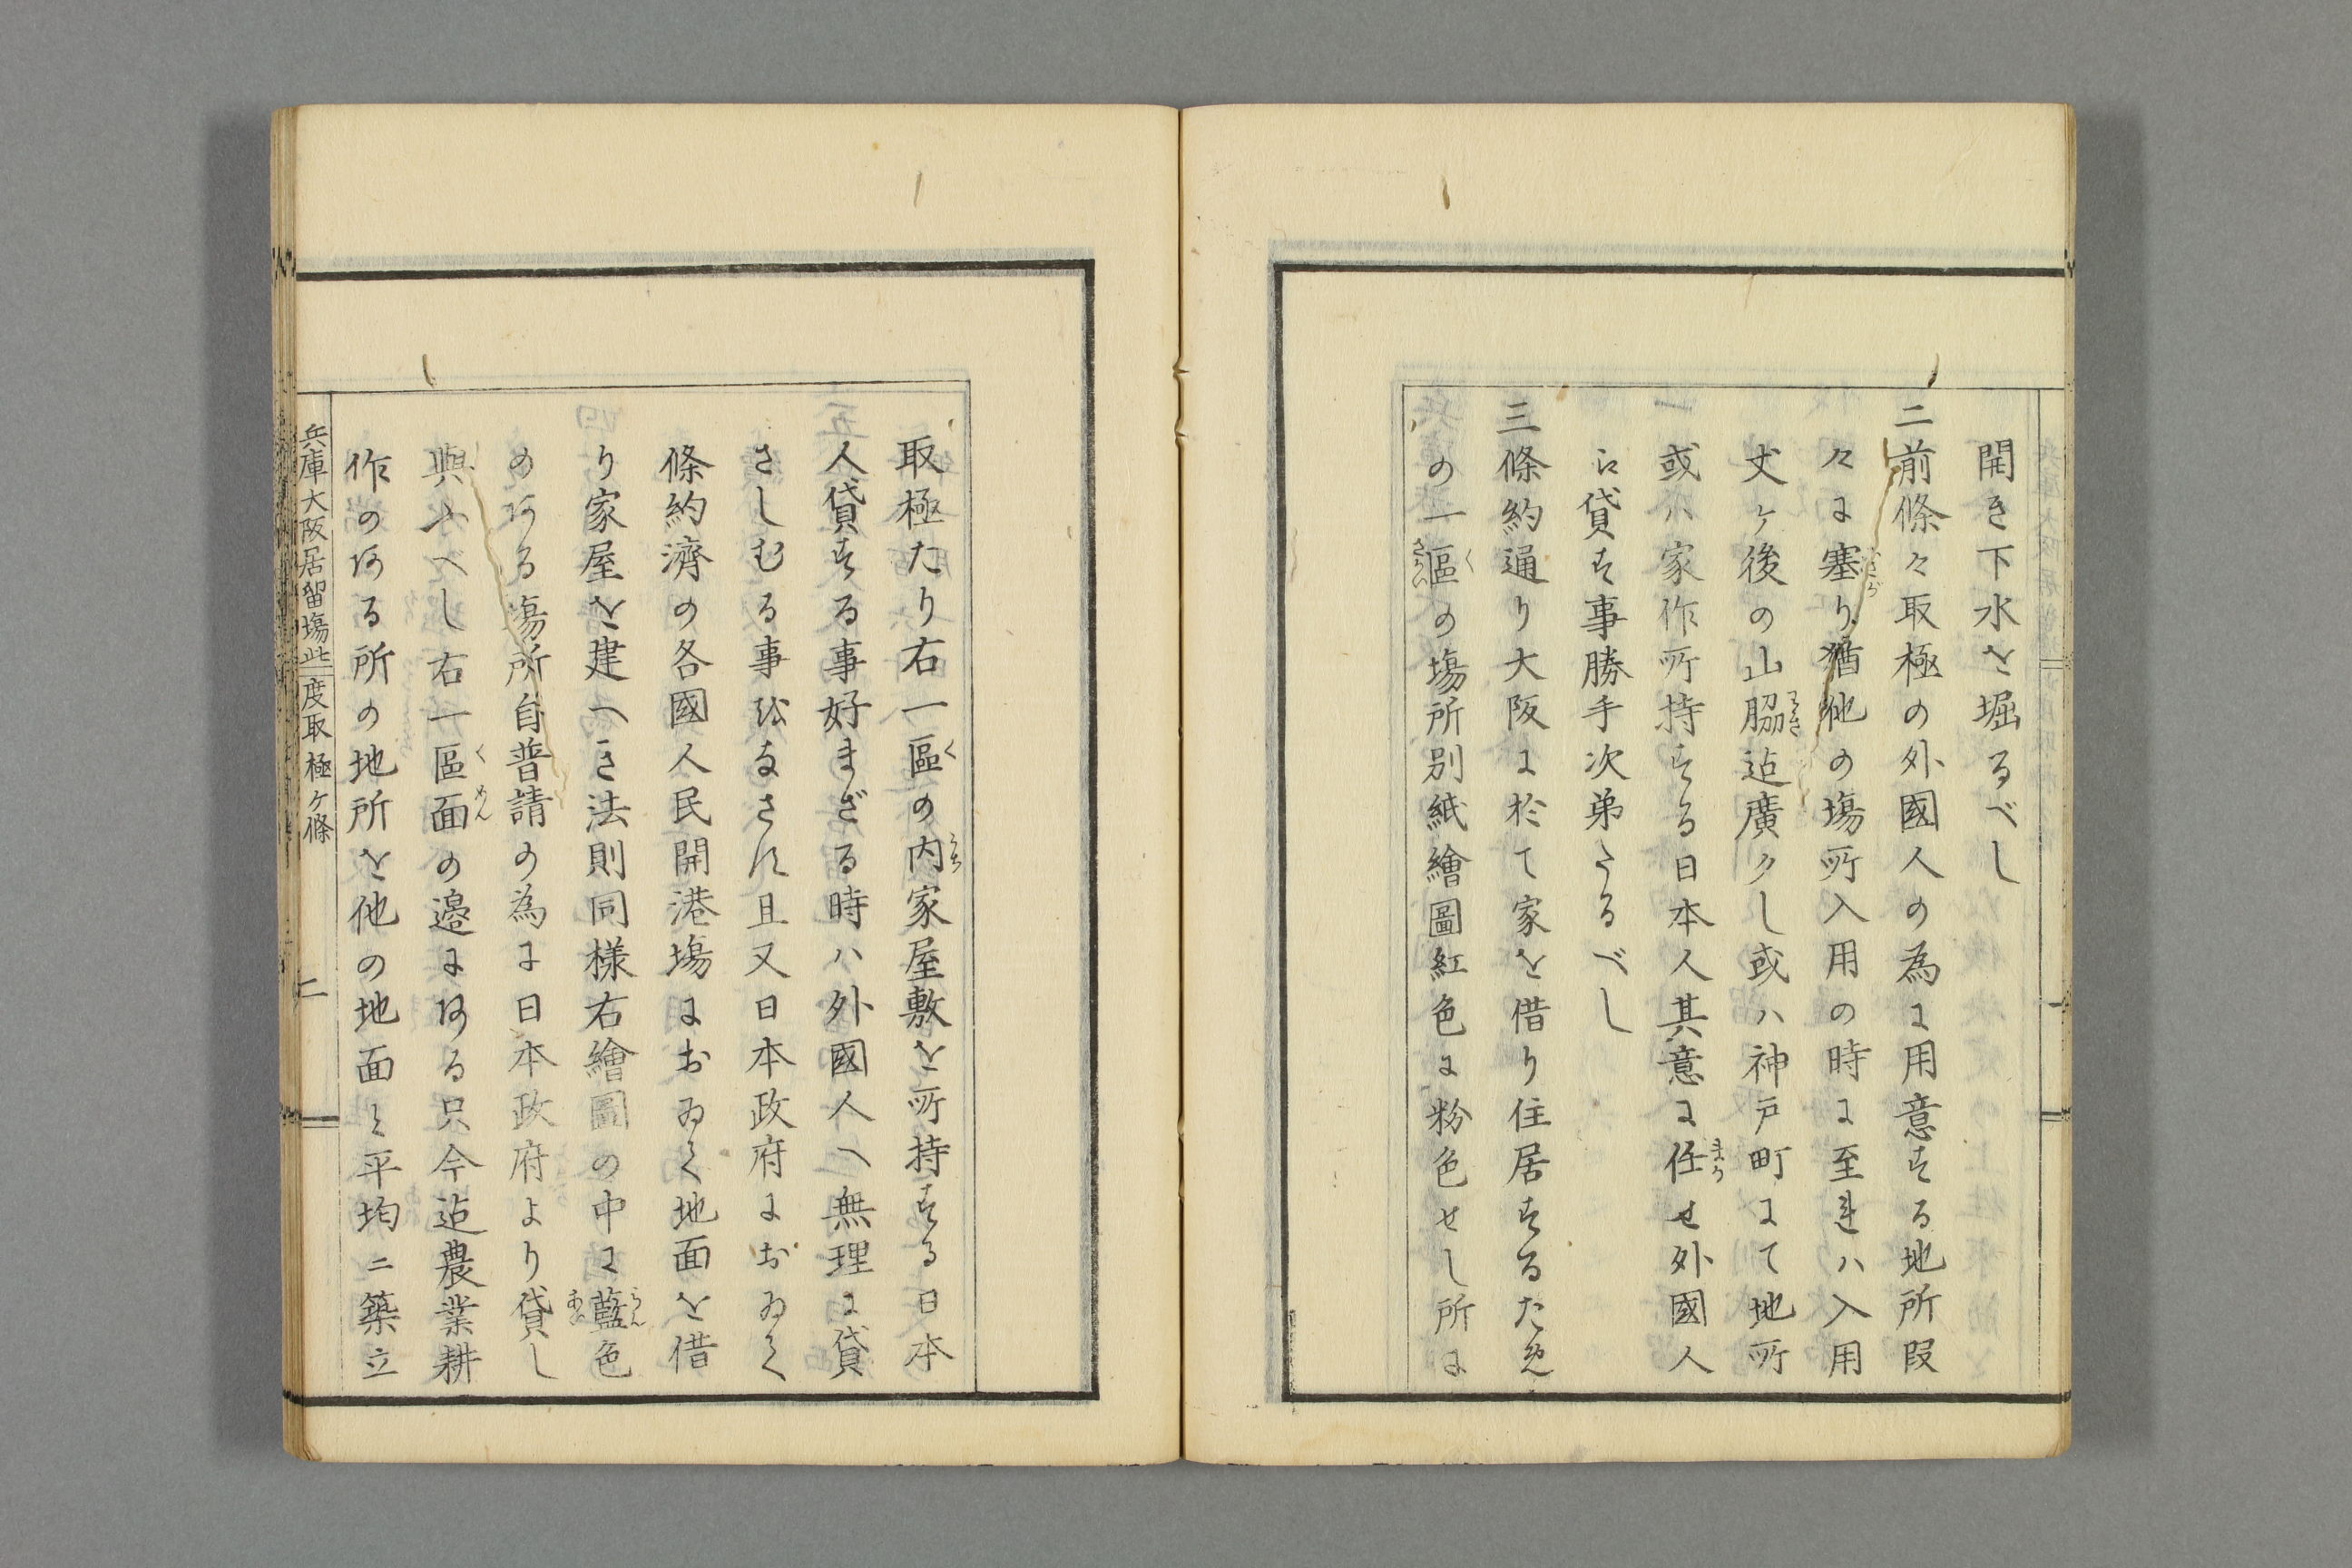 開き下水を堀るべし
二前條々取極の外國人の為に用意する地所叚
々に塞り猶他の場所入用の時に至れハ入用
丈ヶ後の山脇迠廣クし或ハ神戸町にて地所
或ハ家作所持する日本人其意に任せ外國人
に貸す事勝手次弟たるべし
三條約通り大阪に於て家を借り住居するため
の一區の場所別紙繪圖紅色に粉色せし所に
取極たり右一區の内家屋敷を所持する日本
人貸する事好まざる時ハ外國人へ無理に貸
さしむる事はなさす且又日本政府におゐて
條約濟の各國人民開港場におゐて地面を借
り家屋を建へき法則同様右繪圖の中に藍色
のある場所自普請の為に日本政府より貸し
與ふべし右一區面の邉にある只今迠農業耕
作のある所の地所を他の地面と平均ニ築立
兵庫大阪居留場此度取極ヶ條
二